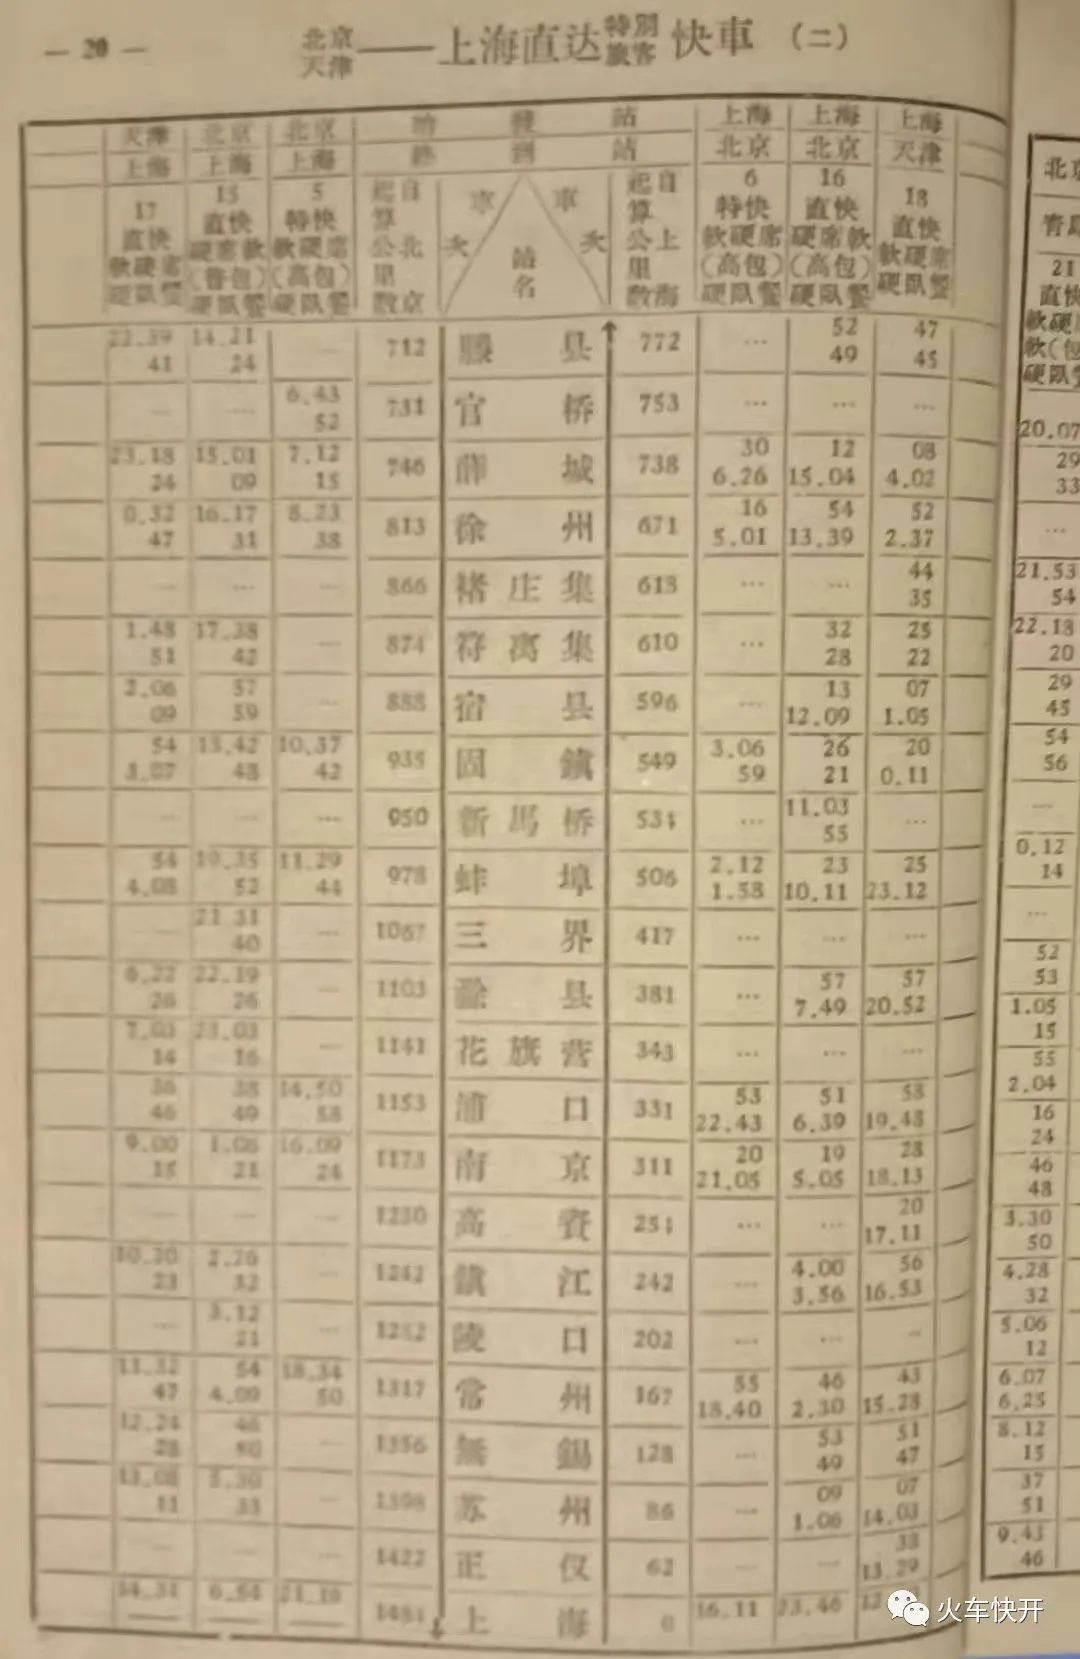 — 20 — 北京 天津 —— 上海直达 特別 旅客 快車 (二)
天津 北京 北京 始發站 上海 上海 上海
上海 上海 上海 終到站 北京 北京 天津
17 直快 軟硬席 硬臥餐
15 直快 硬席軟 (普包) 硬臥餐
5 特快 軟硬席 (高包) 硬臥餐
自北京起算公里数
車次 站名 車次
自上海起算公里数
6 特快 軟硬席 (高包) 硬臥餐
16 直快 硬席軟 (高包) 硬臥餐
18 直快 軟硬席 硬臥餐
22.39 14.21 ... 712 滕县 772 ... 52 47
41 24 49 45
... ... 6.43 731 官桥 753 ... ... ...
52
23.18 15.01 7.12 746 薛城 738 30 12 08
24 09 15 6.26 15.04 4.02
0.32 16.17 8.23 813 徐州 671 16 54 52
47 31 38 5.01 13.39 2.37
... ... ... 866 褚庄集 618 ... ... 44
35
1.48 17.38 ... 874 符离集 610 ... 32 25
51 42 28 22
2.06 57 ... 888 宿县 596 ... 13 07
09 59 12.09 1.05
54 18.42 10.37 935 固鎮 549 3.06 26 20
3.07 48 42 59 21 0.11
... ... ... 950 新馬桥 534 ... 11.03 ...
55
54 19.35 11.29 978 蚌埠 506 2.12 23 25
4.08 52 44 1.58 10.11 23.12
... 21.31 ... 1067 三界 417 ... ... ...
40
6.22 22.19 ... 1103 滁县 381 ... 57 57
26 26 7.49 20.52
7.03 23.03 ... 1141 花旗营 343 ... ... ...
14 16
36 38 14.50 1153 浦口 331 53 51 58
46 49 58 22.43 6.39 19.48
9.00 1.06 16.09 1173 南京 311 20 19 28
15 21 24 21.05 5.05 18.13
... ... ... 1230 高資 254 ... ... 20
17.11
10.20 2.26 ... 1242 鎮江 242 ... 4.00 56
23 32 3.56 16.53
... 3.12 ... 1282 陵口 202 ... ... ...
21
11.32 54 18.34 1317 常州 167 55 46 43
47 4.09 50 18.40 2.30 15.28
12.24 46 ... 1356 無錫 128 ... 53 51
28 50 49 47
13.08 5.30 ... 1398 苏州 86 ... 09 07
11 33 1.06 14.03
... ... ... 1422 正仪 62 ... ... 38
13.29
14.31 6.54 21.19 1484 上海 0 16.11 23.46
北京
青島
21
直快
軟硬席
軟(包
硬臥餐
20.07
29
33
...
21.53
54
22.18
20
29
45
54
56
...
0.12
14
...
52
53
1.05
15
55
2.04
16
24
46
48
3.30
50
4.28
32
5.06
12
6.07
6.25
8.12
15
37
51
9.43
46
火车快开